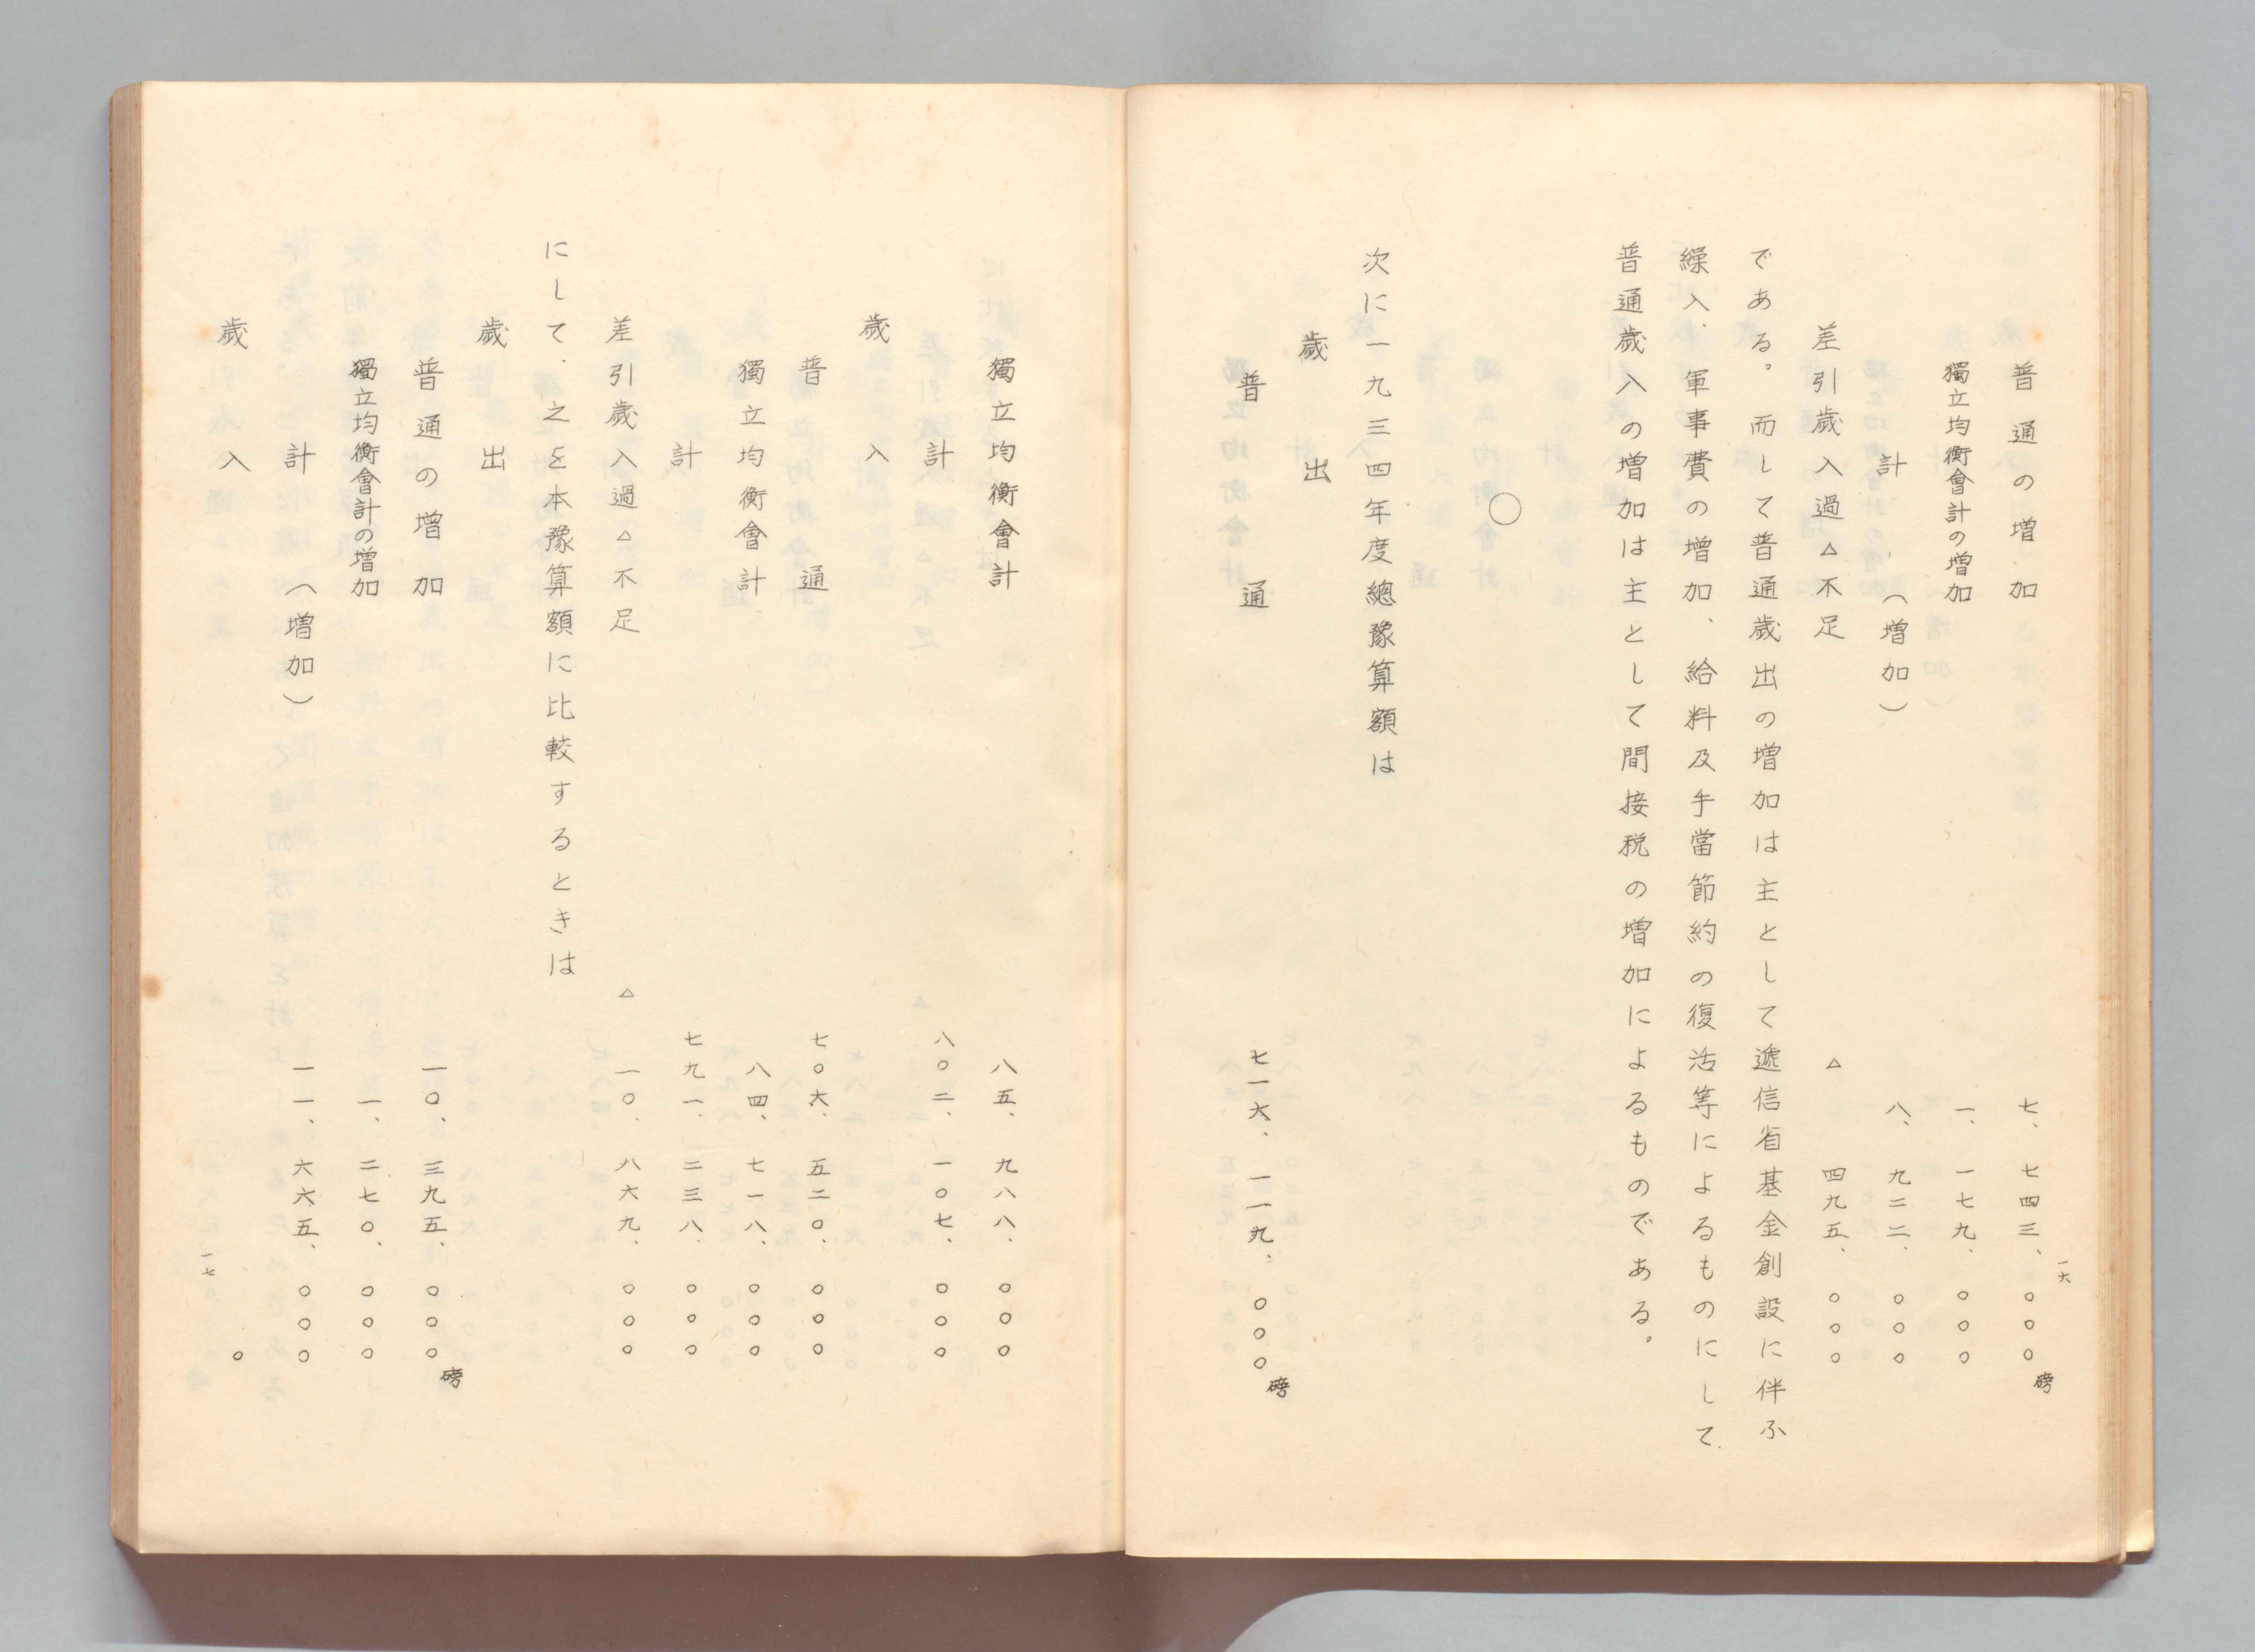 普通の增加 七、七四三、〇〇〇磅
獨立均衡會計の增加 一、一七九、〇〇〇
計(增加) 八、九二二、〇〇〇
差引歲入過△不足 △ 四九五、〇〇〇
である。而して普通歲出の增加は主として遞信省基金創設に伴ふ
繰入、軍事費の增加、給料及手當節約の復活等によるものにして
普通歲入の增加は主として間接税の增加によるものである。
〇
次に一九三四年度總豫算額は
歲出
普通 七一六、一一九、〇〇〇磅
一六
獨立均衡會計 八五、九八八、〇〇〇
計 八〇二、一〇七、〇〇〇
歲入
普通 七〇六、五二〇、〇〇〇
獨立均衡會計 八四、七一八、〇〇〇
計 七九一、二三八、〇〇〇
差引歲入過△不足 △ 一〇、八六九、〇〇〇
にして、之を本豫算額に比較するときは
歲出
普通の增加 一〇、三九五、〇〇〇磅
獨立均衡會計の增加 一、二七〇、〇〇〇
計(增加) 一一、六六五、〇〇〇
歲入 〇
一七